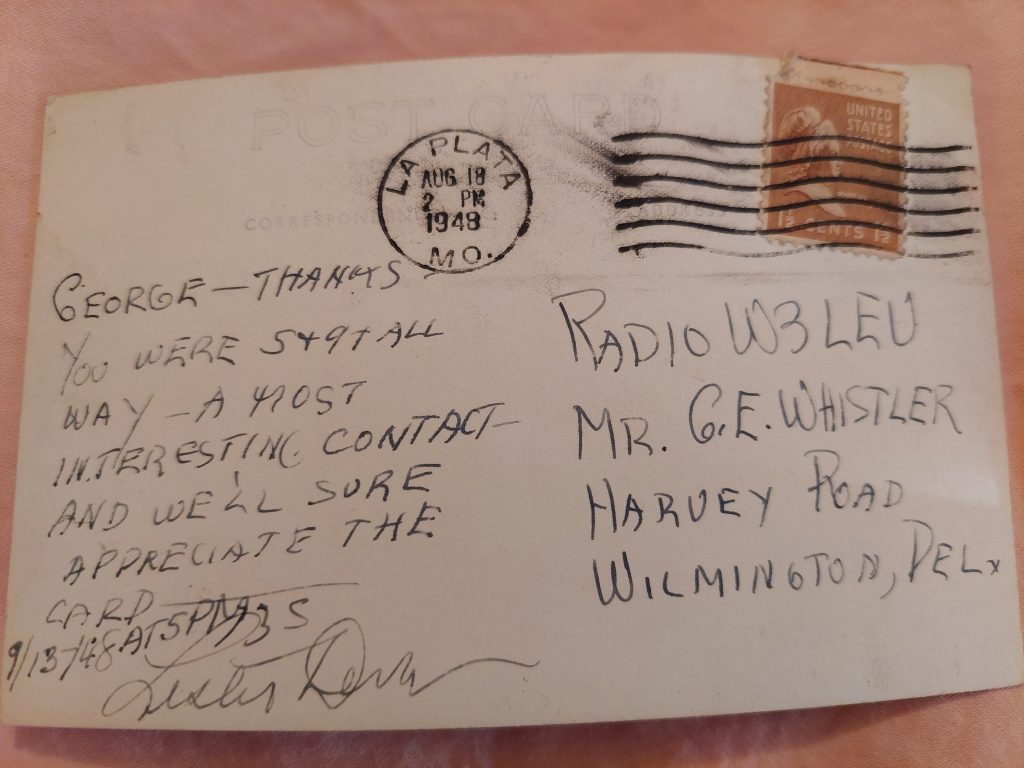 POST CARD
CORRESPONDENCE
ADDRESS
LA PLATA
AUG 18
2 PM
1948
MO.
UNITED
STATES
POSTAGE
1½ CENTS 1½
GEORGE — THANKS
YOU WERE S+9+ ALL
WAY — A MOST
INTERESTING CONTACT —
AND WE'LL SURE
APPRECIATE THE
CARD — 73S
9/13/48 AT 5PM
Lester
RADIO W3LEU
MR. G.E. WHISTLER
HARVEY ROAD
WILMINGTON, DEL